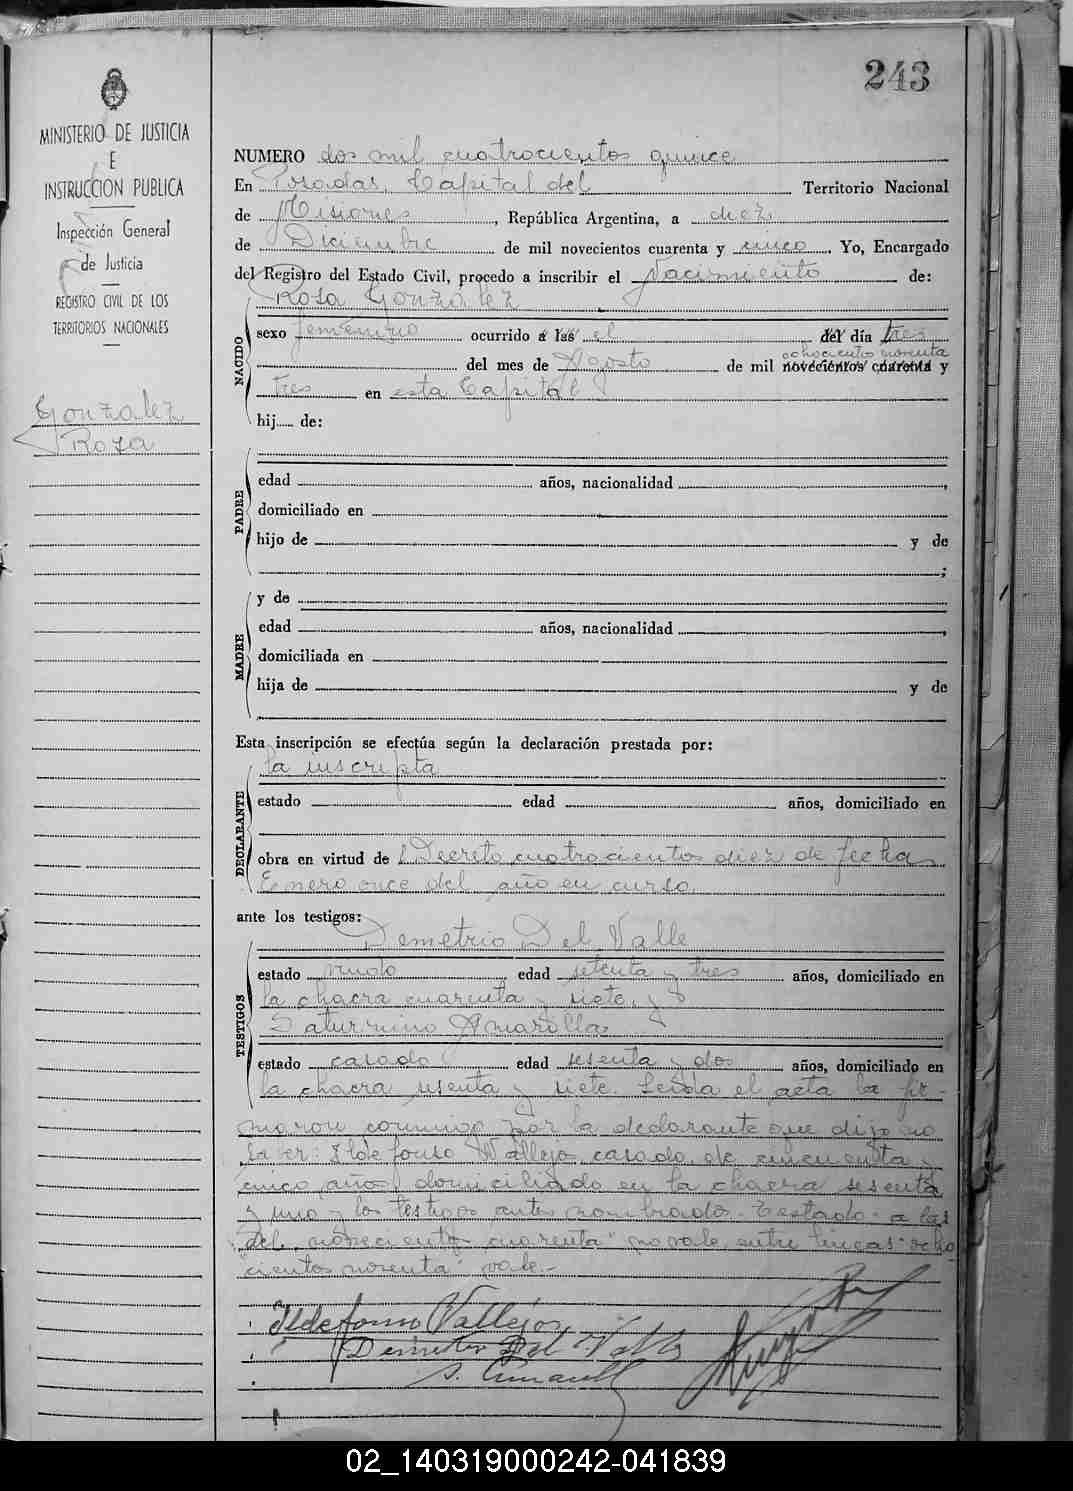 243
MINISTERIO DE JUSTICIA
E
INSTRUCCION PUBLICA
Inspección General
de Justicia
REGISTRO CIVIL DE LOS
TERRITORIOS NACIONALES
Gonzalez
Rosa
NUMERO dos mil cuatrocientos quince
En Posadas, Capital del Territorio Nacional
de Misiones, República Argentina, a diez
de Diciembre de mil novecientos cuarenta y cinco. Yo, Encargado
del Registro del Estado Civil, procedo a inscribir el Nacimiento de:
NACIDO
Rosa Gonzalez
sexo femenino ocurrido a las el del día tres
ochocientos noventa
del mes de Agosto de mil novecientos cuarenta y
tres en esta Capital
hij de:
PADRE
edad años, nacionalidad ,
domiciliado en
hijo de y de
;
MADRE
y de
edad años, nacionalidad ,
domiciliada en
hija de y de
Esta inscripción se efectúa según la declaración prestada por:
DECLARANTE
la inscripta
estado edad años, domiciliado en
obra en virtud de l Decreto cuatrocientos diez de fecha
Enero once del año en curso
ante los testigos:
TESTIGOS
Demetrio Del Valle
estado viudo edad setenta y tres años, domiciliado en
la chacra cuarenta y siete, y
Saturnino Amarilla
estado casado edad sesenta y dos años, domiciliado en
la chacra sesenta y siete. Leída el acta la fir-
maron conmigo por la declarante que dijo no
saber: Ildefonso Vallejos, casado, de cincuenta y
cinco años, domiciliado en la chacra sesenta
y uno y los testigos antes nombrados.- Testado- a las
"del, novecientos cuarenta" no vale, entre lineas "ocho
cientos noventa" vale.-
Ildefonso Vallejos
Demetrio Del Valle
S. Amarilla
02_140319000242-041839